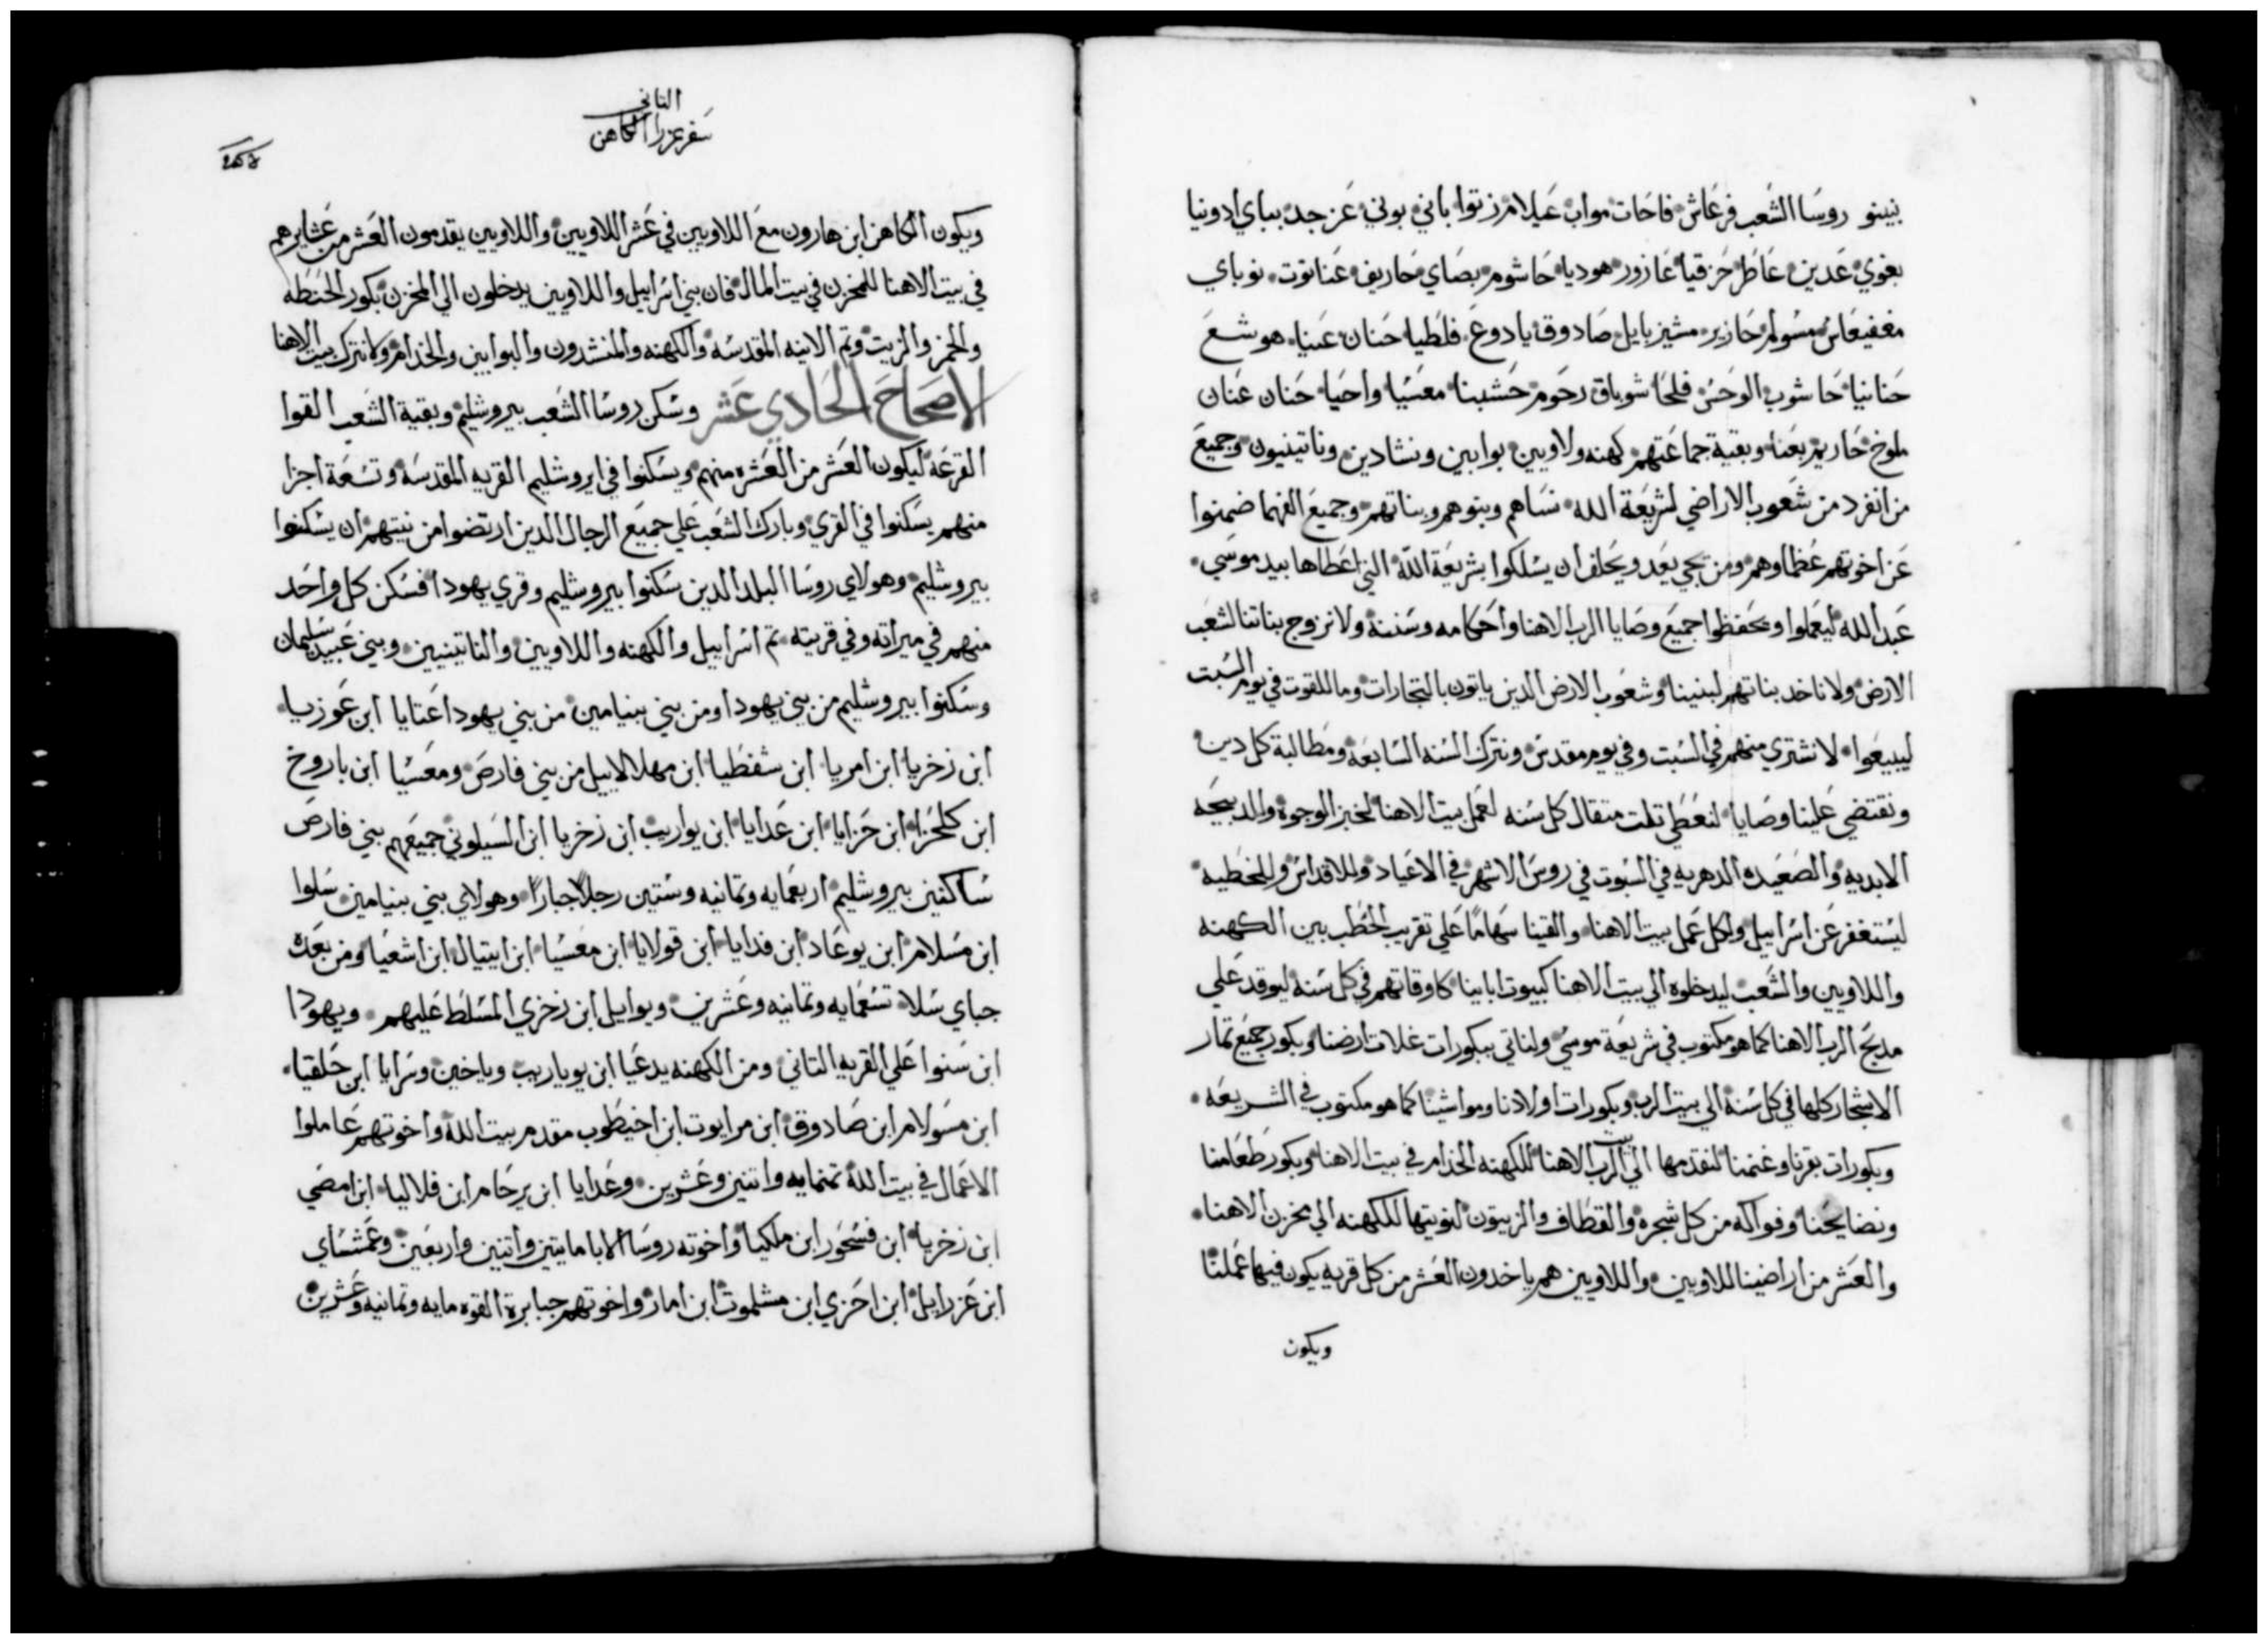 بنينو روسا الشعب فرعاش فاحات مواب عيلام زتوا باني بوني عزجد بباي ادونيا
بغوي عدين عاطر حزقيا عازور هوديا حاشوم بصاي حاريف عناتوت نوباي
مغفيعاس مسولم حازير مشيزبايل صادوق يادوع فلطيا حنان عننيا هوشع
حنانيا حاشوب الوحس فلحا شوباق رحوم حشبنا معسيا واحيا حنان عنان
ملوخ حاريم بعنا وبقية جماعتهم كهنه ولاويين بوابين ونشادين وناتينيون وجميع
من انفرد من شعوب الاراضي لشريعة الله نساهم وبنوهم وبناتهم وجميع الفهما ضمنوا
عن اخوتهم عظماوهم ومن يجي يعد ويحلف ان يسلكوا بشريعة الله التي اعطاها بيد موسي
عبد الله ليعملوا ويحفظوا جميع وصايا الرب الاهنا واحكامه وسننه ولا نزوج بناتنا لشعب
الارض ولا ناخد بناتهم لبنينا وشعوب الارض الدين ياتون بالتجارات وما للقوت في يوم السبت
ليبيعوا لا نشتري منهم في السبت وفي يوم مقدس ونترك السنه السابعه ومطالبة كل دين
ونقتضي علينا وصايا لنعطي تلت متقال كل سنه لعمل بيت الاهنا لخبز الوجوه والدبيحه
الابديه والصعيده الدهريه في السبوت في روس الاشهر في الاعياد وللاقداس وللخطيه
ليستغفر عن اسراييل ولكل عمل بيت الاهنا والقينا سهاما علي تقريب الحطب بين الكهنه
واللاويين والشعب ليدخلوه الي بيت الاهنا كبيوت ابابينا كاوقاتهم في كل سنه ليوقد علي
مدبح الرب الاهنا كما هو مكتوب في شريعة موسي ولناتي ببكورات غلات ارضنا وبكور جميع تمار
الاشجار كلها في كل سنه الي بيت الرب وبكورات اولادنا ومواشينا كما هو مكتوب في الشريعه
وبكورات بقرنا وغنمنا لنقدمها الي بيت الرب الاهنا للكهنه الخدام في بيت الاهنا وبكور طعامنا
ونضايحنا وفواكه من كل شجره والقطاف والزيتون لنوتيها للكهنه الي مخزن الاهنا
والعشر من اراضينا اللاويين واللاويين هم ياخدون العشر من كل قريه يكون فيها عملنا
ويكون
التاني
سفر عزرا الكاهن
ويكون الكاهن ابن هارون مع اللاويين في عشر اللاويين واللاويين يقدمون العشر من عشايرهم
في بيت الاهنا للمخزن في بيت المال فان بني اسراييل واللاويين يدخلون الي المخزن بكور الحنطه
والخمر والزيت وتم الانيه المقدسه والكهنه والمنشدون والبوابين والخدام ولا نترك بيت الاهنا
الاصحاح الحادي عشر وسكن روسا الشعب بيروشليم وبقية الشعب القوا
القرعه ليكون العشر من العشره منهم ويسكنوا في ايروشليم القريه المقدسه وتسعة اجزا
منهم يسكنوا في القري وبارك الشعب علي جميع الرجال الدين ارتضوا من نيتهم ان يسكنوا
بيروشليم وهولاي روسا البلد الدين سكنوا بيروشليم وقري يهودا فسكن كل واحد
منهم في ميراته وفي قريته تم اسراييل والكهنه واللاويين والناتينيين وبني عبيد سليمان
وسكنوا بيروشليم من بني يهودا ومن بني بنيامين من بني يهودا عتايا ابن عوزيا
ابن زخريا ابن امريا ابن شفطيا ابن مهلالاييل من بني فارص ومعسيا ابن باروخ
ابن كلحزا ابن حزايا ابن عدايا ابن يواريب ابن زخريا ابن السيلوني جميعهم بني فارص
ساكنين بيروشليم اربعمايه وتمانيه وستين رجلا جبارا وهولاي بني بنيامين سلوا
ابن مسلام ابن يوعاد ابن فدايا ابن قولايا ابن معسيا ابن ايتيال ابن اشعيا ومن بعده
جباي سلا تسعمايه وتمانيه وعشرين ويوايل ابن زخري المسلط عليهم ويهودا
ابن سنوا علي القريه التاني ومن الكهنه يدعيا ابن يوياريب وياخين وسرايا ابن حلقيا
ابن مسولام ابن صادوق ابن مرايوت ابن اخيطوب مقدم بيت الله واخوتهم عاملوا
الاعمال في بيت الله تمنمايه واتنين وعشرين وعدايا ابن يرحام ابن فلاليا ابن امصي
ابن زخريا ابن فسحور ابن ملكيا واخوته روسا الابا مايتين واتنين واربعين وعمشساي
ابن عزرايل ابن احزي ابن مشلموت ابن امار واخوتهم جبابرة القوه مايه وتمانيه وعشرين